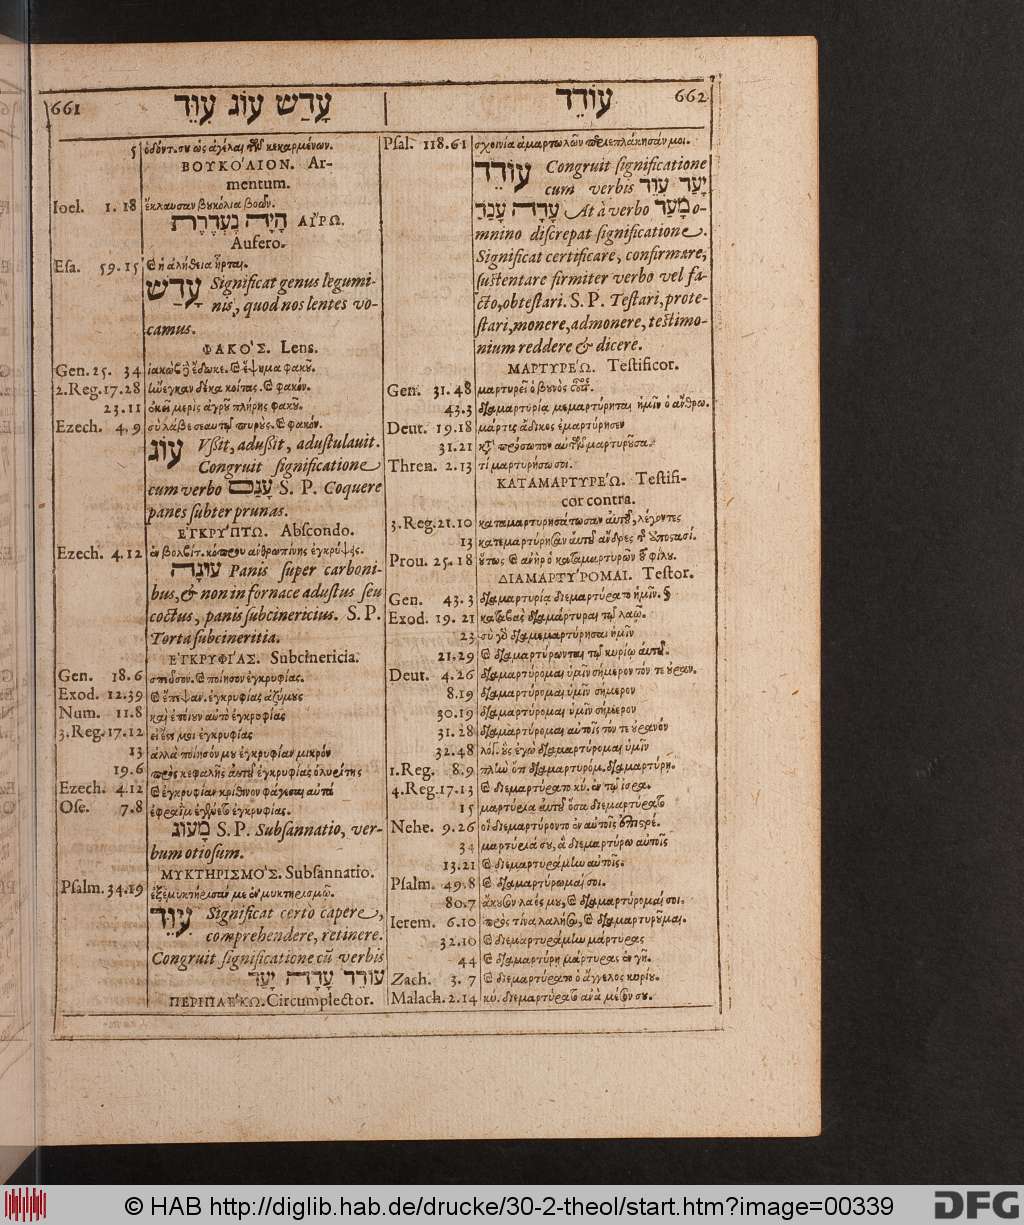 661 עָדַשׁ עוּג עִוֵּד
5 ὀδόντ. σου ὡς ἀγέλαι τῶν κεκαρμένων.
ΒΟΥΚΟ'ΛΙΟΝ. Ar-
mentum.
Ioel. 1. 18 ἔκλαυσαν βυκόλια βοῶν.
הָיָה נֶעְדֶּרֶת ΑΙ῎ΡΩ.
Aufero.
Esa. 59. 15 καὶ ἡ ἀλήθεια ἦρται.
עָדַשׁ Significat genus legumi-
nis, quod nos lentes vo-
camus.
ΦΑΚΟ'Σ. Lens.
Gen. 25. 34 ἰακὼβ δὲ ἔδωκε. καὶ ἕψημα φακῦ.
2. Reg. 17. 28 δέκα κοίτας. καὶ φακόν.
23. 11 μερὶς ἀγρῦ πλήρης φακῦ.
Ezech. 4. 9 σὺ λάβε σεαυτῷ πυρὺς. καὶ φακόν.
עוּג Vssit, adussit, adustulauit.
Congruit significatione
cum verbo S. P. Coquere
panes subter prunas.
ΕΓΚΡΥ'ΠΤΩ. Abscondo.
Ezech. 4. 12 ἐν βολβίτ. κόπρου ἀνθρωπίνης ἐγκρύψεις.
עוּגָה Panis super carboni-
bus, & non in fornace adustus seu
coctus, panis subcinericius. S. P.
Torta subcineritia.
ΕΓΚΡΥΦΙ'ΑΣ. Subcinericia.
Gen. 18. 6 σπεῦσον. καὶ ποίησον ἐγκρυφίας.
Exod. 12. 39 καὶ ἔπεψαν. ἐγκρυφίας ἀζύμυς
Num. 11. 8 καὶ ἐποίυν αὐτὸ ἐγκρυφίας
3. Reg. 17. 12 εἰ ἔστι μοι ἐγκρυφίας
13 ἀλλὰ ποίησόν μυ ἐγκρυφίαν μικρόν
19. 6 πρὸς κεφαλῆς αὐτῦ ἐγκρυφίας ὀλυρίτης
Ezech. 4. 12 καὶ ἐγκρυφίαν κρίθινον φάγεσαι αὐτά
Ose. 7. 8 ἐφραὶμ ἐγένετο ἐγκρυφίας.
מָעוֹג S. P. Subsannatio, ver-
bum otiosum.
ΜΥΚΤΗΡΙΣΜΟ'Σ. Subsannatio.
Psalm. 34. 19 ἐξεμυκτήρισάν με ἐν μυκτηρισμῷ.
עִוֵּד Significat certo capere,
comprehendere, retinere.
Congruit significatione cũ verbis
ΠΕΡΙΠΛΕ'ΚΩ. Circumplector.
עוֹדֵד 662
Psal. 118. 61 σχοινία ἁμαρτωλῶν περιεπλάκησάν μοι.
עוֹדֵד Congruit significatione
cum verbis יָעַד עִוֵּד
At à verbo מָעַד o-
mnino discrepat significatione.
Significat certificare, confirmare,
sustentare firmiter verbo vel fa-
cto, obtestari. S. P. Testari, prote-
stari, monere, admonere, testimo-
nium reddere & dicere.
ΜΑΡΤΥΡΕ'Ω. Testificor.
Gen. 31. 48 μαρτυρεῖ ὁ βυνὸς
43. 3 διαμαρτυρίᾳ μεμαρτύρηται ἡμῖν ὁ ἄνθρω.
Deut. 19. 18 μάρτις ἄδικος ἐμαρτύρησεν
31. 21 κατὰ πρόσωπον αὐτῶν μαρτυρῦσα.
Thren. 2. 13 τί μαρτυρήσω σοι.
ΚΑΤΑΜΑΡΤΥΡΕ'Ω. Testifi-
cor contra.
3. Reg. 21. 10 καταμαρτυρησάτωσαν αὐτῦ, λέγοντες
13 κατεμαρτύρησαν αὐτῦ ἄνδρες
Prou. 25. 18 ὕτως καὶ ἀνὴρ ὁ καταμαρτυρῶν τῦ φίλυ.
ΔΙΑΜΑΡΤΥ'ΡΟΜΑΙ. Testor.
Gen. 43. 3 διαμαρτυρίᾳ διεμαρτύρατο ἡμῖν.
Exod. 19. 21 καταβὰς διαμάρτυραι τῷ λαῷ.
23 σὺ γὸ διαμεμαρτύρησαι ἡμῖν
21. 29 καὶ διαμαρτύρωνται τῷ κυρίῳ αὐτῦ.
Deut. 4. 26 διαμαρτύρομαι ὑμῖν σήμερον τόν τε ὐραν.
8. 19 διαμαρτύρομαι ὑμῖν σήμερον
30. 19 διαμαρτύρομαι ὑμῖν σήμερον
31. 28 διαμαρτύρομαι αὐτοῖς τόν τε ὐρανόν
32. 48 λόγ. ὓς ἐγὼ διαμαρτύρομαι ὑμῖν
1. Reg. 8. 9 πλὴν ὅτι διαμαρτυρόμ. διαμαρτύρῃ.
4. Reg. 17. 13 καὶ διεμαρτύρατο κύ. ἐν τῷ ἰσρα.
15 μαρτύρια αὐτῦ ὅσα διεμαρτύρατο
Nehe. 9. 26 οἳ διεμαρτύροντο ἐν αὐτοῖς ἐπιστρέ.
34 μαρτύριά συ, ἃ διεμαρτύρω αὐτοῖς
13. 21 καὶ διεμαρτυράμην αὐτοῖς.
Psalm. 49. 8 καὶ διαμαρτύρωμαί σοι.
80. 7 ἄκυσον λαός μυ, καὶ διαμαρτύρομαί σοι.
Ierem. 6. 10 πρὸς τίνα λαλήσω, καὶ διαμαρτυρῦμαι.
32. 10 καὶ διεμαρτυράμην μάρτυρας
44 καὶ διαμαρτύρῃ μάρτυρας ἐν γῇ.
Zach. 3. 7 καὶ διεμαρτύρατο ὁ ἄγγελος κυρίυ.
Malach. 2. 14 κύ. διεμαρτύρατο ἀνὰ μέσον συ.
© HAB http://diglib.hab.de/drucke/30-2-theol/start.htm?image=00339
DFG